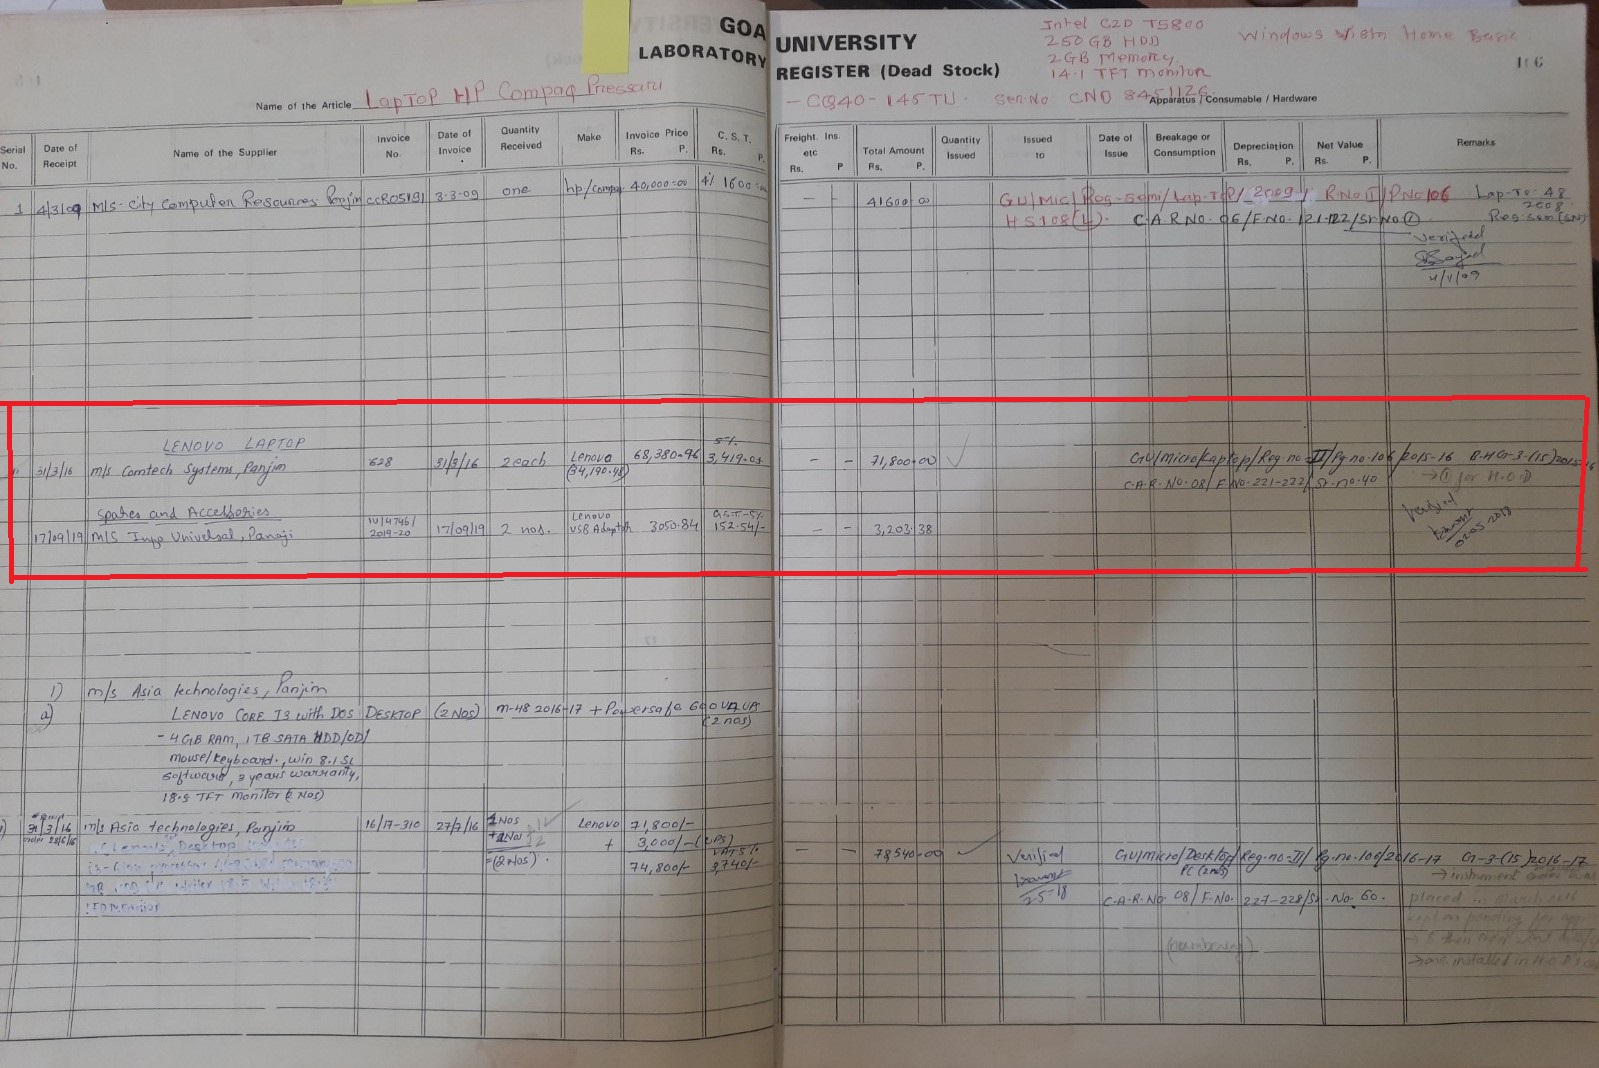 GOA UNIVERSITY
LABORATORY REGISTER (Dead Stock)
Intel C2D T5800
250 GB HDD
2 GB Memory
14.1 TFT monitor
Windows Vista Home Basic
106
Name of the Article LAPTOP HP Compaq Pressario - CQ40-145TU. Ser.No CND 8451126
Apparatus / Consumable / Hardware
Serial No. Date of Receipt Name of the Supplier Invoice No. Date of Invoice Quantity Received Make Invoice Price Rs. P. C. S. T. Rs. P. Freight. Ins. etc Rs. P Total Amount Rs. P. Quantity Issued Issued to Date of Issue Breakage or Consumption Depreciation Rs. P. Net Value Rs. P. Remarks
1 4/3/09 M/s- City Computer Resources Panjim CCR05191 3-3-09 one hp/compaq 40,000=00 4% 1600=00 - - 41600 00 GU/Mic/Reg-Semi/Lap-Top/2009/ R.No II/P No 106 Lap-To- 48
2008
HS108(L) C.A.R No. 06/F.No. 121-122/Sr No ① Reg: sem (SN)
Verified
4/4/09
LENOVO LAPTOP
31/3/16 m/s Comtech Systems, Panjim 628 31/3/16 2 each Lenovo (34,190.48) 68,380.96 5% 3,419.05 - - 71,800=00 GU/micro/Laptop/Reg. no-II/Pg. no-106/2015-16 G-3-(15)2015-16
C.A.R. No. 08/F.No. 221-222/Sr. no. 40 → ① for H.O.D
Verified
02.05.2018
Spares and Accessories
17/09/19 M/S Info Universal, Panaji IU/4746/2019-20 17/09/19 2 nos. Lenovo USB Adapter 3050.84 G.S.T-5% 152.54/- - - 3,203.38
1) m/s Asia technologies, Panjim
a) LENOVO CORE I3 with DOS DESKTOP (2 NOS) M-48 2016-17 + Powersafe 600 VA
(2 nos)
- 4 GB RAM, 1TB SATA HDD/ODD/
mouse/keyboard, win 8.1 SL
software, 3 years warranty,
18.5 TFT monitor (2 NOS)
31/3/16 m/s Asia technologies, Panjim 16/17-310 27/7/16 Lenovo 71,800/-
+ 3,000/- (UPS)
=(2 Nos). 74,800/- VAT 5% 3,740/- - - 78540=00
Verified
2-5-18
GU/micro/Desktop/Reg-no-II/Pg. no-106/2016-17 G-3-(15)2016-17
PC (2 nos)
→ instrument order was
C.A.R. No. 08/F.No. 227-228/Sr. No. 60. placed in March 2016
kept on pending for
→ & then
→ one installed in H.O.D's